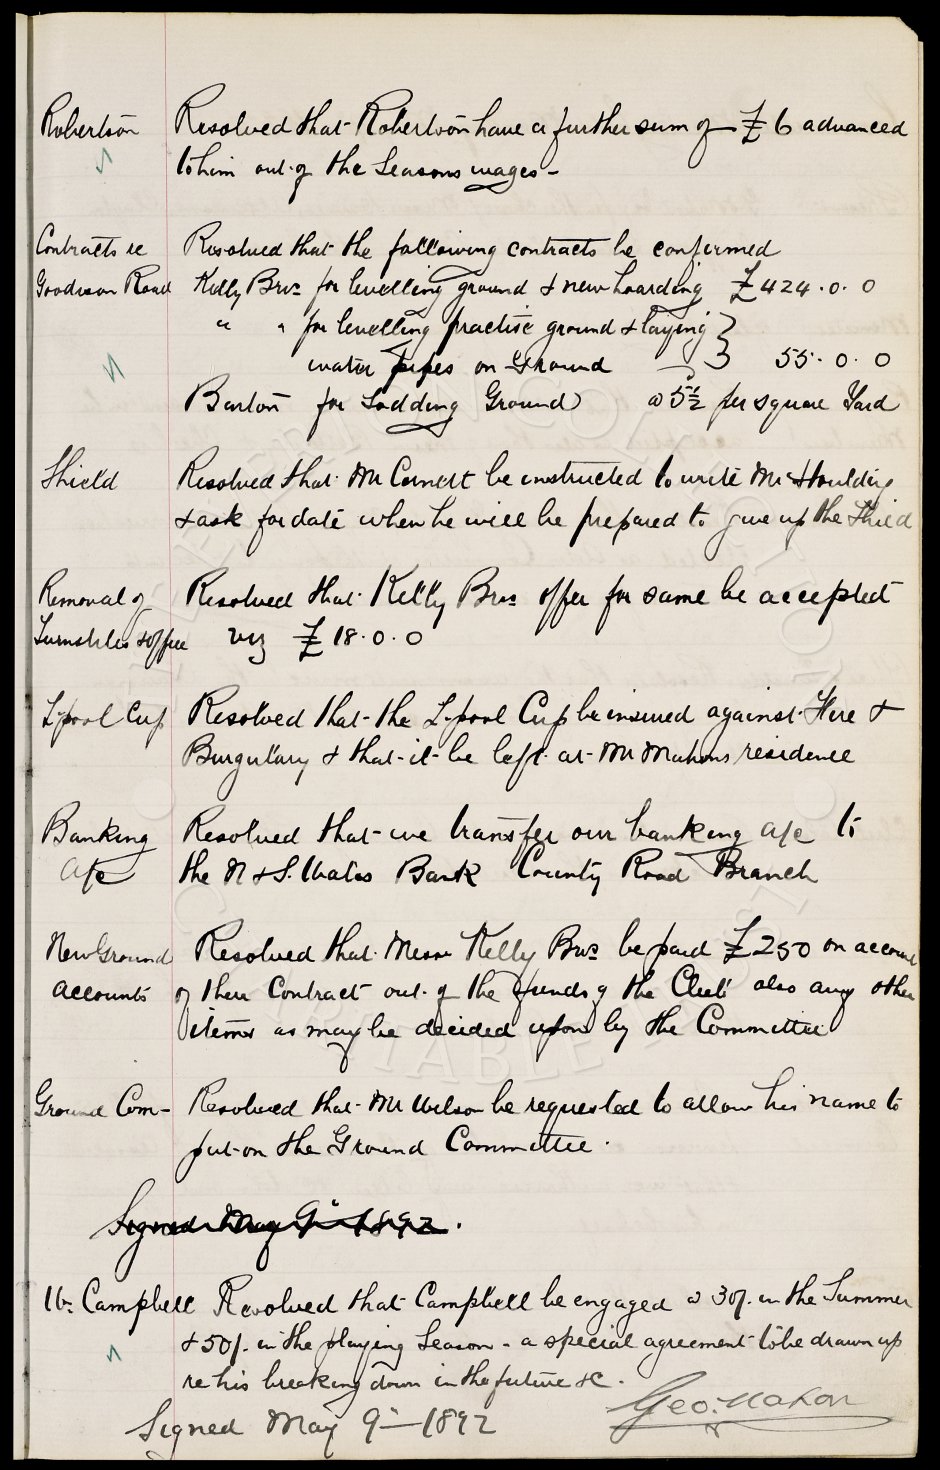 Robertson Resolved that Robertson have a further sum of £6 advanced
to him out of the Seasons wages -
Contracts re Resolved that the following contracts be confirmed
Goodison Road Kelly Bros for levelling ground & new hoarding £424.0.0
" " for levelling practise ground & laying }
water pipes on Ground 55.0.0
Barton for Sodding Ground @ 5½ per square Yard
Shield Resolved that Mr Clement be instructed to write Mr Houlding
& ask for date when he will be prepared to give up the Shield
Removal of Resolved that Kelly Bros offer for same be accepted
Turnstiles & Office viz £18.0.0
L.pool Cup Resolved that the L.pool Cup be insured against Fire &
Burgulary & that it be left at Mr Mahons residence
Banking Resolved that we transfer our banking a/c to
a/c the N & S. Wales Bank County Road Branch
New Ground Resolved that Messrs Kelly Bros be paid £250 on account
accounts of their Contract out of the funds of the Club also any other
items as may be decided upon by the Committee
Ground Com- Resolved that Mr Wilson be requested to allow his name to
put on the Ground Committee.
Signed May 9th 1892.
Wm Campbell Resolved that Campbell be engaged @ 30/. in the Summer
& 50/. in the playing Season - a special agreement to be drawn up
re his breaking down in the future &c.
Geo. Mahon
Signed May 9th 1892